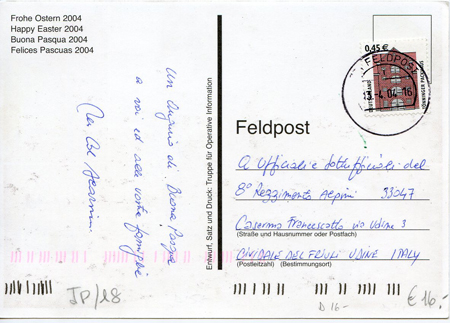 Frohe Ostern 2004
Happy Easter 2004
Buona Pasqua 2004
Felices Pascuas 2004
Un augurio di Buona Pasqua
a voi ed alle vostre famiglie
Entwurf, Satz und Druck: Truppe für Operative Information
Feldpost
0,45 €
DEUTSCHLAND
FELDPOST
-4.04-16
Ufficiali e Sottufficiali del
8° Reggimento Alpini 33047
Caserma Francescatto via Udine 3
(Straße und Hausnummer oder Postfach)
CIVIDALE DEL FRIULI UDINE ITALY
(Postleitzahl) (Bestimmungsort)
JP/18
D 16-
€ 16,-